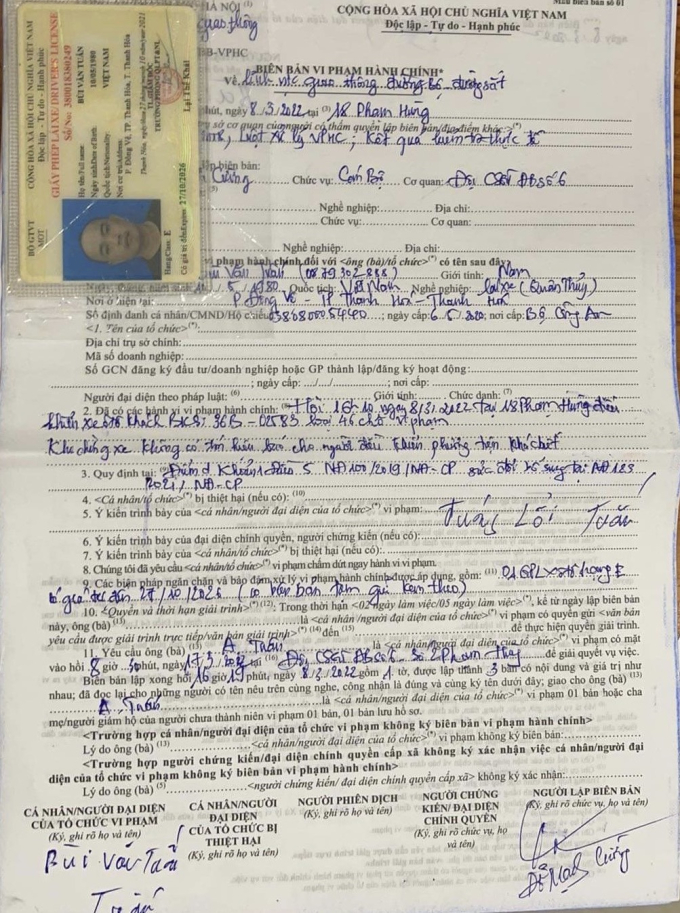 Mẫu biên bản số 01
HÀ NỘI (1)
CỘNG HÒA XÃ HỘI CHỦ NGHĨA VIỆT NAM
Độc lập - Tự do - Hạnh phúc
giao thông
BB-VPHC
BỘ GTVT
MOT
CỘNG HÒA XÃ HỘI CHỦ NGHĨA VIỆT NAM
Độc lập - Tự do - Hạnh phúc
GIẤY PHÉP LÁI XE/ DRIVER'S LICENSE
Số/No: 380018380249
Họ tên/Full name: BÙI VĂN TUẤN
Ngày sinh/Date of Birth: 10/05/1980
Quốc tịch/Nationality: VIỆT NAM
Nơi cư trú/Address:
P. Đông Vệ, TP. Thanh Hóa, T. Thanh Hóa
Lại Thế Khải
Hạng/Class: E
Có giá trị đến/Expires: 27/10/2026
BIÊN BẢN VI PHẠM HÀNH CHÍNH*
Về lĩnh vực giao thông đường bộ, đường sắt
phút, ngày 8/3/2022 tại (3) 18 Phạm Hùng
Luật Xử lý VPHC; Kết quả kiểm tra thực tế
lập biên bản:
Cường Chức vụ: Cán Bộ Cơ quan: Đội CSGT ĐB số 6
Nghề nghiệp: Địa chỉ:
Chức vụ: Cơ quan:
Nghề nghiệp: Địa chỉ:
vi phạm hành chính đối với <ông (bà)/tổ chức>(*) có tên sau đây:
Bùi Văn Tuấn Giới tính: Nam
/5/1980 Quốc tịch: Việt Nam Nghề nghiệp: Lái xe
Nơi ở hiện tại: P Đông Vệ - TP Thanh Hóa - Thanh Hóa
Số định danh cá nhân/CMND/Hộ chiếu: ngày cấp: 6/5/2020; nơi cấp: Bộ Công An
<1. Tên của tổ chức>(*):
Địa chỉ trụ sở chính:
Mã số doanh nghiệp:
Số GCN đăng ký đầu tư/doanh nghiệp hoặc GP thành lập/đăng ký hoạt động:
; ngày cấp: .../.../...; nơi cấp:
Người đại diện theo pháp luật: (6) Giới tính: Chức danh: (7)
2. Đã có các hành vi vi phạm hành chính: (8) Hồi 16h10 ngày 8/3/2022 tại 18 Phạm Hùng điều
khiển xe ô tô khách BKS: 36B - 02583 loại 46 chỗ vi phạm
Khi dừng xe không có tín hiệu báo cho người điều khiển phương tiện khác biết
3. Quy định tại: Điểm d Khoản 1 Điều 5 NĐ 100/2019/NĐ-CP sửa đổi bổ sung tại NĐ 123
2021/NĐ-CP
4. <Cá nhân/tổ chức>(*) bị thiệt hại (nếu có): (10)
5. Ý kiến trình bày của <cá nhân/người đại diện của tổ chức>(*) vi phạm: Đúng Lỗi Tuấn
6. Ý kiến trình bày của đại diện chính quyền, người chứng kiến (nếu có):
7. Ý kiến trình bày của <cá nhân/tổ chức>(*) bị thiệt hại (nếu có):
8. Chúng tôi đã yêu cầu <cá nhân/tổ chức>(*) vi phạm chấm dứt ngay hành vi vi phạm.
9. Các biện pháp ngăn chặn và bảo đảm xử lý vi phạm hành chính được áp dụng, gồm: (11) 01 GPLX ô tô hạng E
có giá trị đến 27/10/2026 (có biên bản tạm giữ kèm theo)
10. <Quyền và thời hạn giải trình>(*)(12): Trong thời hạn <02 ngày làm việc/05 ngày làm việc>(*), kể từ ngày lập biên bản
này, ông (bà) (13) là <cá nhân/đại diện của tổ chức>(*) vi phạm có quyền gửi <văn bản
yêu cầu được giải trình trực tiếp/văn bản giải trình>(*)(14) đến (15) để thực hiện quyền giải trình.
11. Yêu cầu ông (bà) (13) A. Tuấn là <cá nhân/đại diện của tổ chức>(*) vi phạm có mặt
vào hồi 8 giờ 30 phút, ngày 17/3/2022 tại (16) Đội CSGT ĐB số 6 - Số 2 Phạm Hùng để giải quyết vụ việc.
Biên bản lập xong hồi 16 giờ 19 phút, ngày 8/3/2022 gồm 1 tờ, được lập thành 3 bản có nội dung và giá trị như
nhau; đã đọc lại cho những người có tên nêu trên cùng nghe, công nhận là đúng và cùng ký tên dưới đây; giao cho ông (bà) (13)
A. Tuấn là <cá nhân/đại diện của tổ chức>(*) vi phạm 01 bản hoặc cha
mẹ/người giám hộ của người chưa thành niên vi phạm 01 bản, 01 bản lưu hồ sơ.
<Trường hợp cá nhân/đại diện của tổ chức vi phạm không ký biên bản vi phạm hành chính>
Lý do ông (bà) (13) <cá nhân/đại diện của tổ chức>(*) vi phạm không ký biên bản:
<Trường hợp người chứng kiến/đại diện chính quyền cấp xã không ký xác nhận việc cá nhân/người đại
diện của tổ chức vi phạm không ký biên bản vi phạm hành chính>
Lý do ông (bà) (5) <người chứng kiến/ đại diện chính quyền cấp xã> không ký xác nhận:
CÁ NHÂN/NGƯỜI ĐẠI DIỆN
CỦA TỔ CHỨC VI PHẠM
(Ký, ghi rõ họ và tên)
Bùi Văn Tuấn
Tuấn
CÁ NHÂN/NGƯỜI
ĐẠI DIỆN
CỦA TỔ CHỨC BỊ
THIỆT HẠI
(Ký, ghi rõ họ và tên)
NGƯỜI PHIÊN DỊCH
(Ký, ghi rõ họ và tên)
NGƯỜI CHỨNG
KIẾN/ ĐẠI DIỆN
CHÍNH QUYỀN
(Ký, ghi rõ chức vụ, họ
và tên)
NGƯỜI LẬP BIÊN BẢN
(Ký, ghi rõ chức vụ, họ và tên)
Đỗ Mạnh Cường